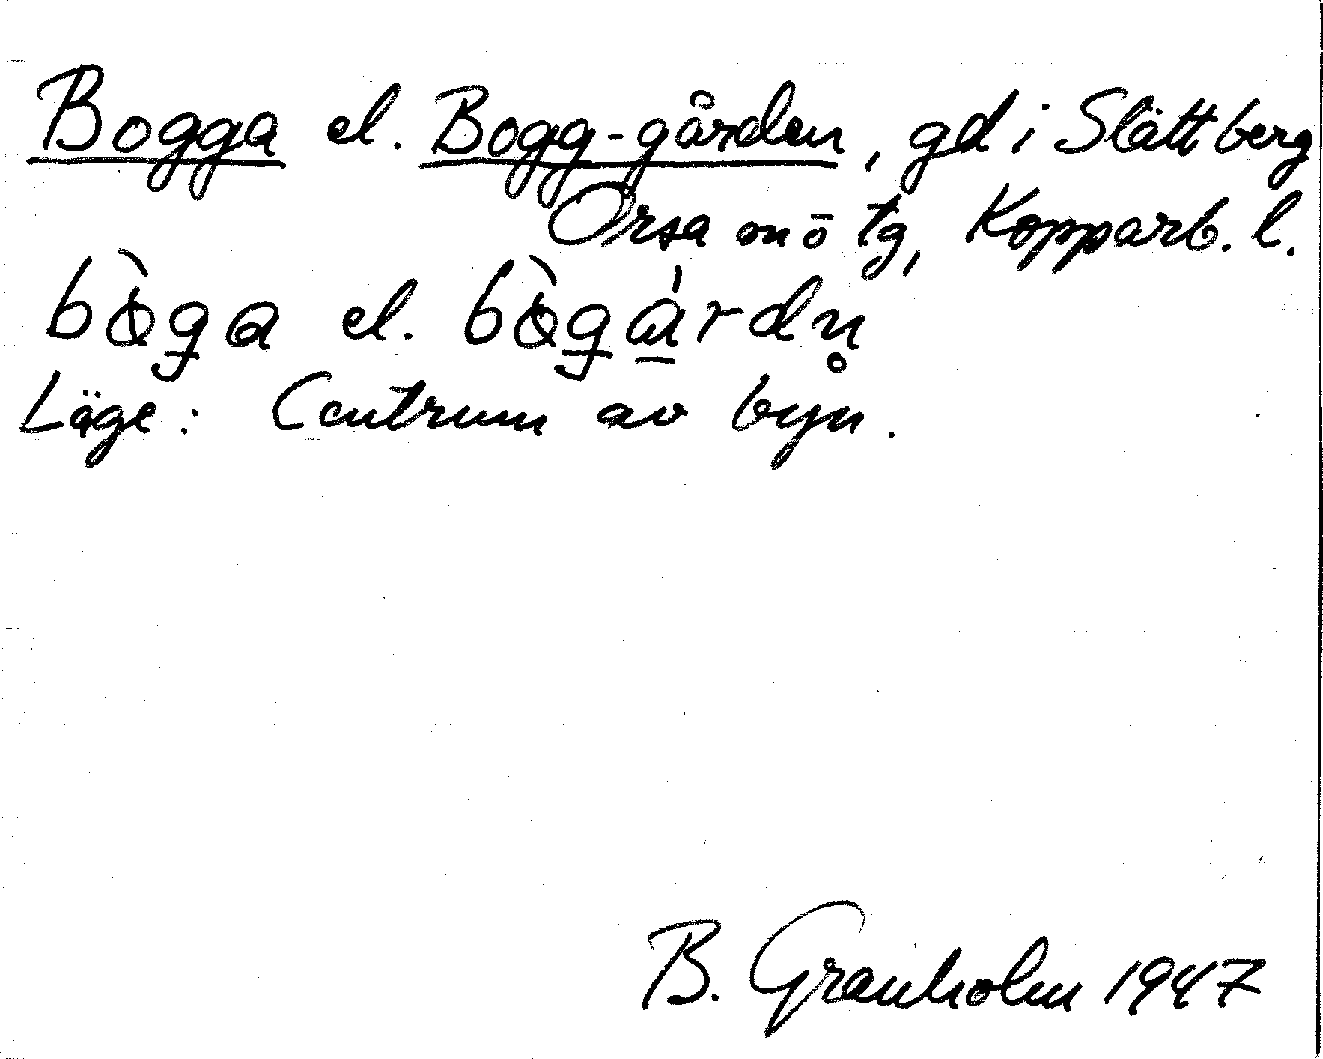 Bogga el. Bogg-gården, gd i Slättberg
Orsa mō tg, Kopparb. l.
bòga el. bògárdn̥
Läge: Centrum av byn.
B. Granholm 1947